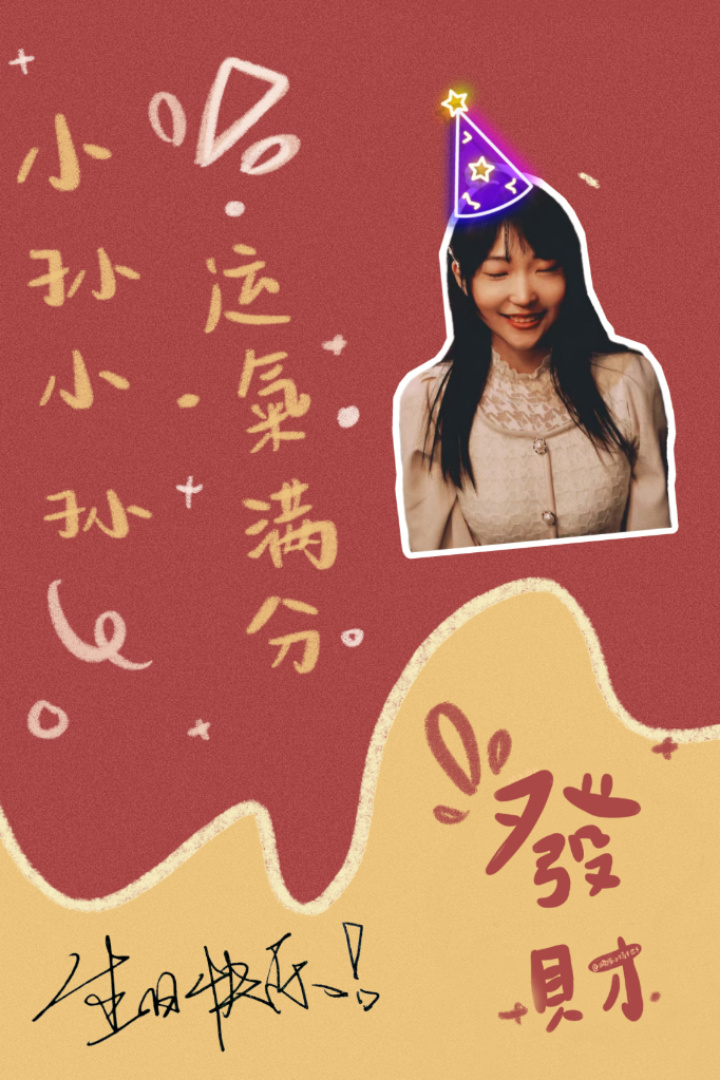 小孙小孙
运氣满分
發財
生日快乐!